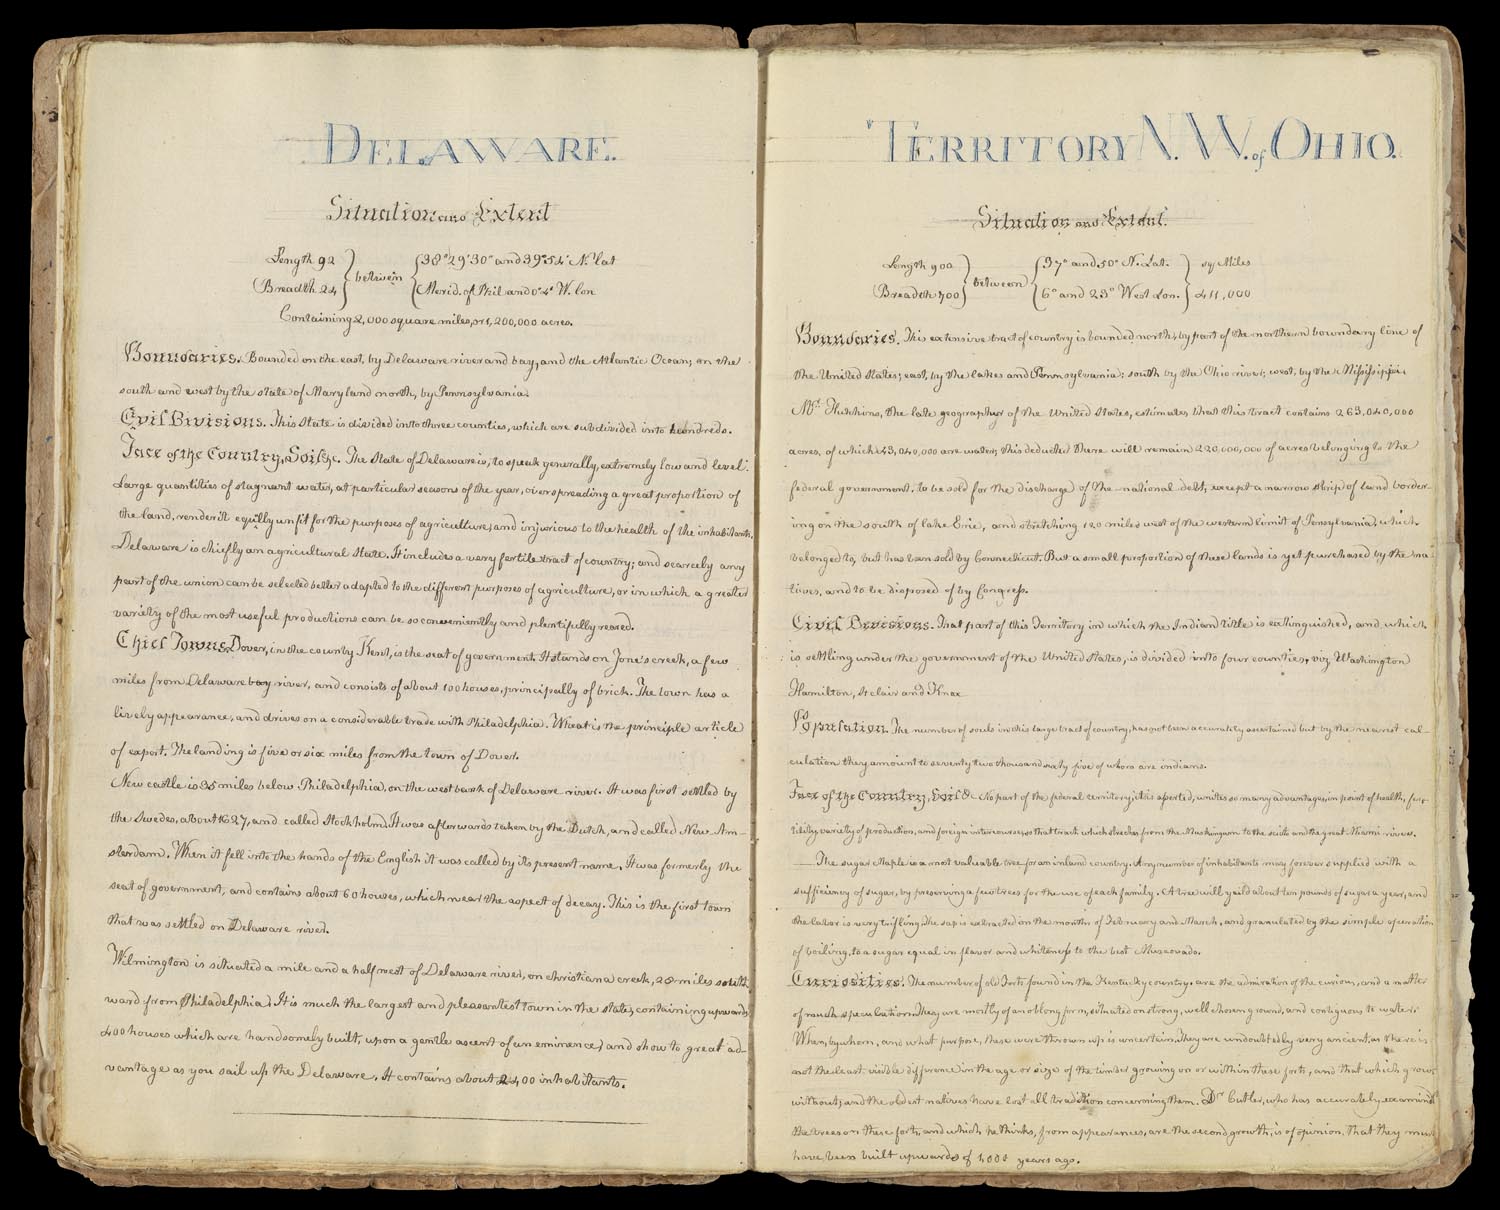 DELAWARE.
Situation and Extent
Length 92 } between { 38° 29' 30" and 39° 54' N. lat
Breadth 24 } { Merid. of Phil and 0° 4' W. lon
Containing 2,000 square miles, or 1,200,000 acres.
Boundaries. Bounded on the east, by Delaware river and bay, and the Atlantic Ocean; on the
south and west by the state of Maryland north, by Pennsylvania.
Civil Divisions. This State is divided into three counties, which are subdivided into hundreds.
Face of the Country, Soil &c. The State of Delaware is, to speak generally, extremely low and level.
Large quantities of stagnant water, at particular seasons of the year, overspreading a great proportion of
the land, render it equilly unfit for the purposes of agriculture, and injurious to the health of the inhabitants.
Delaware is chiefly an agricultural State. It includes a very fertile tract of country; and scarcely any
part of the union can be selected better adapted to the different purposes of agriculture, or in which a greater
variety of the most useful productions can be so conveniently and plentifully reared.
Chief Towns. Dover, in the county Kent, is the seat of government. It stands on Jone's creek, a few
miles from Delaware bay river, and consists of about 100 houses, principally of brick. The town has a
lively appearance, and drives on a considerable trade with Philadelphia. Wheat is the principle article
of export. The landing is five or six miles from the town of Dover.
New castle is 35 miles below Philadelphia, on the west bank of Delaware river. It was first settled by
the Swedes, about 1627, and called Stockholm. It was afterwards taken by the Dutch, and called New Am-
sterdam. When it fell into the hands of the English it was called by its present name. It was formerly the
seat of government, and contains about 60 houses, which wear the aspect of decay. This is the first town
that was settled on Delaware river.
Wilmington is situated a mile and a half west of Delaware river, on christiana creek, 28 miles south
ward from Philadelphia. It is much the largest and pleasantest town in the state, containing upwards
400 houses which are handsomely built, upon a gentle ascent of an eminence, and show to great ad-
vantage as you sail up the Delaware. It contains about 2400 inhabitants.
TERRITORY N. W. of OHIO.
Situation and Extent.
Length 900 } between { 37° and 50° N. Lat. } sq Miles
Breadth 700 } { 6° and 23° West Lon. } 411,000
Boundaries. This extensive tract of country is bounded north, by part of the northern boundary line of
the United States; east, by the lakes and Pennsylvania; south by the Ohio river; west, by the Missisippi.
Mr. Hutchins, the late geographer of the United States, estimates that this tract contains 263,040,000
acres, of which 43,040,000 are water; this deducted there will remain 220,000,000 of acres belonging to the
federal government, to be sold for the discharge of the national debt; except a narrow strip of land border-
ing on the south of lake Erie, and stretching 120 miles west of the western limit of Pensylvania, which
belonged to, but has been sold by Connecticut. But a small proportion of these lands is yet purchased by the na
tives, and to be disposed of by Congress.
Civil Divisions. That part of this Territory in which the Indian title is extinguished, and which
is settling under the government of the United States, is divided into four counties, viz Washington
Hamilton, St clair and Knox
Population. The number of souls in this large tract of country, has not been accurately ascertained but by the nearest cal-
culation they amount to seventy two thousand sixty five of whom are indians.
Face of the Country, Soil &c. No part of the federal territory, it is aserted, unites so many advantages, in point of health, fer-
tility, variety of production, and foreign intercourse, as that tract which streches from the Muskingum to the scioto and the great Miami river.
The sugar Maple is a most valueable tree for an inland country. Any number of inhabitants may forever supplied with a
sufficiency of sugar, by preserving a few trees for the use of each family. A tree will yeild about ten pounds of sugar a year, and
the labor is very trifling. The sap is extracted on the months of February and March, and granulated by the simple operation
of boiling, to a sugar equal in flavor and whiteness to the best Muscovado.
Curiosities. The number of old Forts found in the Kentucky country, are the admiration of the curious, and a matter
of much speculation. They are mostly of an oblong form, situated on strong, well chosen ground, and contiguous to water.
When, by whom, and what purpose, these were thrown up is uncertain. They are undoubtedly very ancient, as there is
not the least visible diffrence in the age or size of the timber growing on or within these forts, and that which grows
without; and the oldest natives have lost all tradition concerning them. Dr Cutler, who has accurately examined
the trees on these forts, and which he thinks, from appearances, are the second growth, is of opinion that they must
have been built upwards of 1000 years ago.